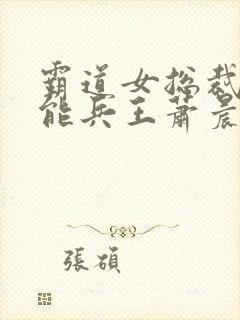 霸道女总裁
能兵王萧晨
張碩